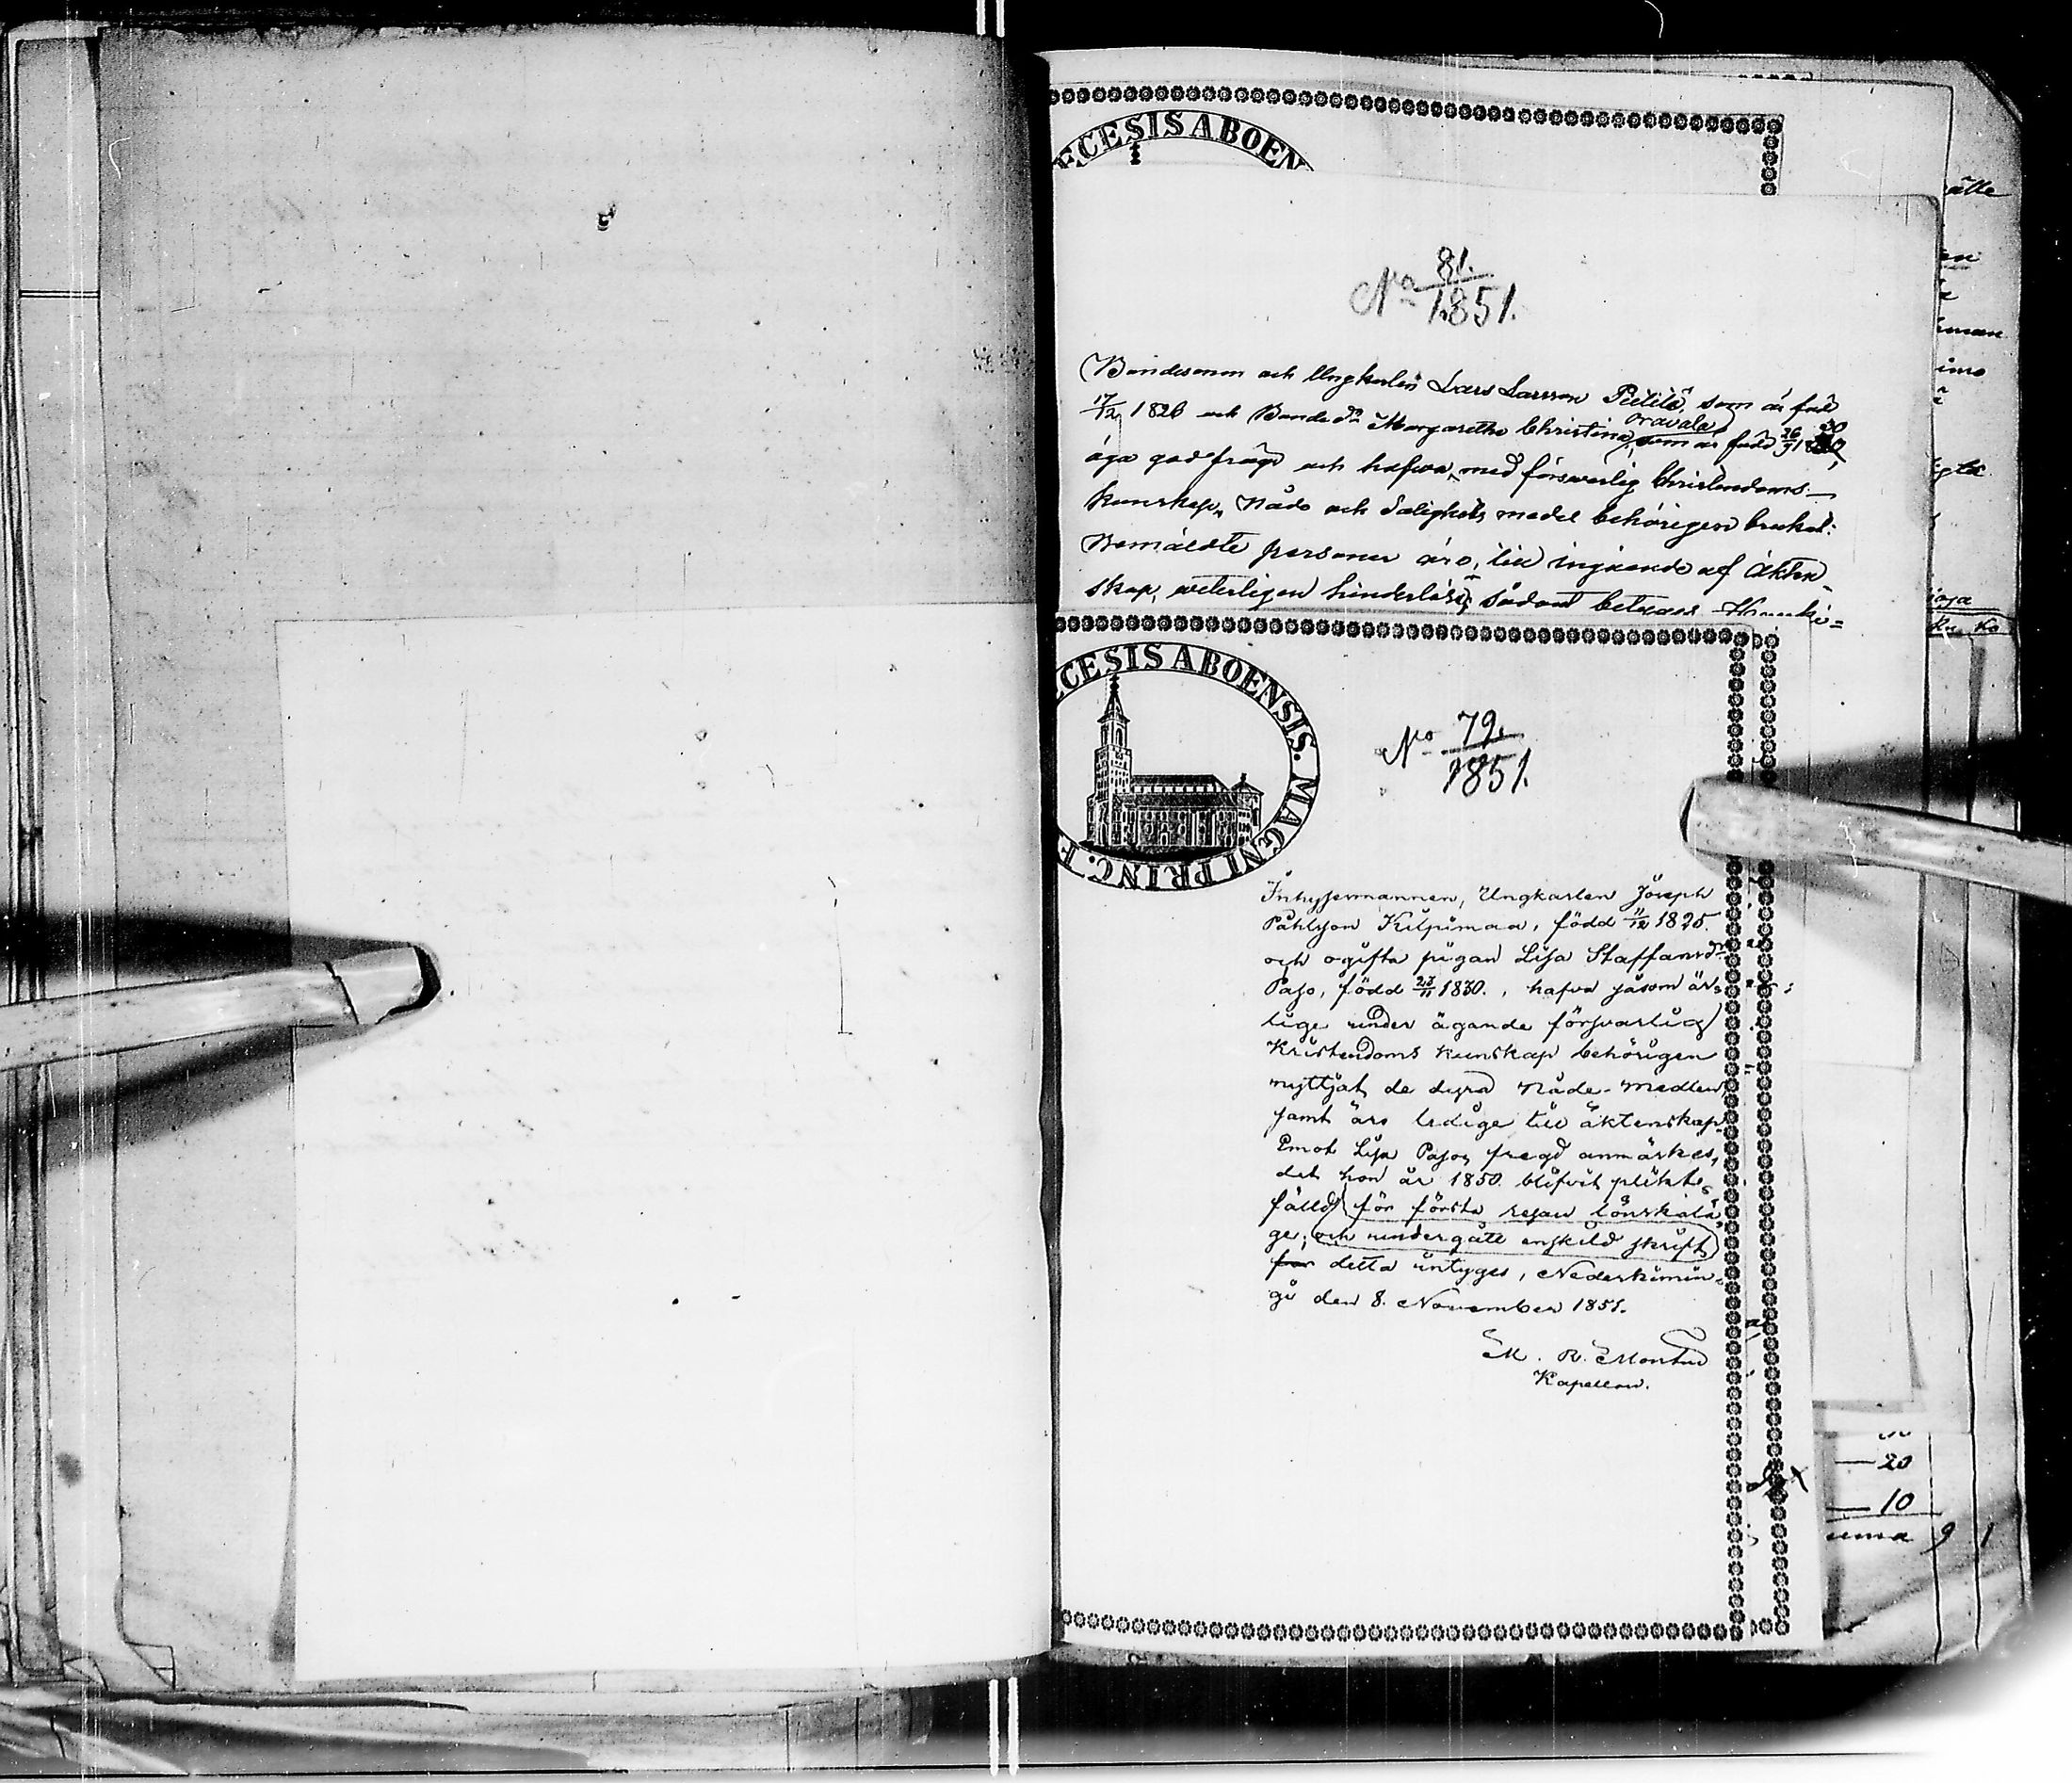 ECESIS ABOEN
No 81.
1851.
Bondesonen och Ungkarlen Lars Larsson Pietilä, som är född
17/12 1826 och Bonde dr Margaretha Christina Oravala, som är född 26/9 1830,
äga god frägd och hafva, med försvarlig Christendoms-
kunskap, Nådo och Salighets medel behörigen brukat:
Bemäldte personer äro, till ingående af Äkten-
skap, veterligen hinderlöse; sådant betygas
ECESIS ABOENSIS. MAGNI PRINC. F
No 79.
1851.
Inhysesmannen, Ungkarlen Joseph
Påhlsson Kilpimaa, född 11/12 1825.
och ogifta pigan Lisa Staffansdr
Pajo, född 23/11 1830., hafva såsom är-
lige under ägande försvarlig
Kristendoms kunskap behörigen
nyttjat de dyra Nåde-medlen,
samt äro ledige till äktenskap.
Emot Lisa Pajos fregd anmärkes,
det hon år 1850. blifvit plikt-
fälld för första resan lönskalä-
ge, och undergått enskild skrift
för detta intyges, Nederkimin-
gi den 8. November 1851.
M. R. Montin
Kapellan.
20
10
9 1